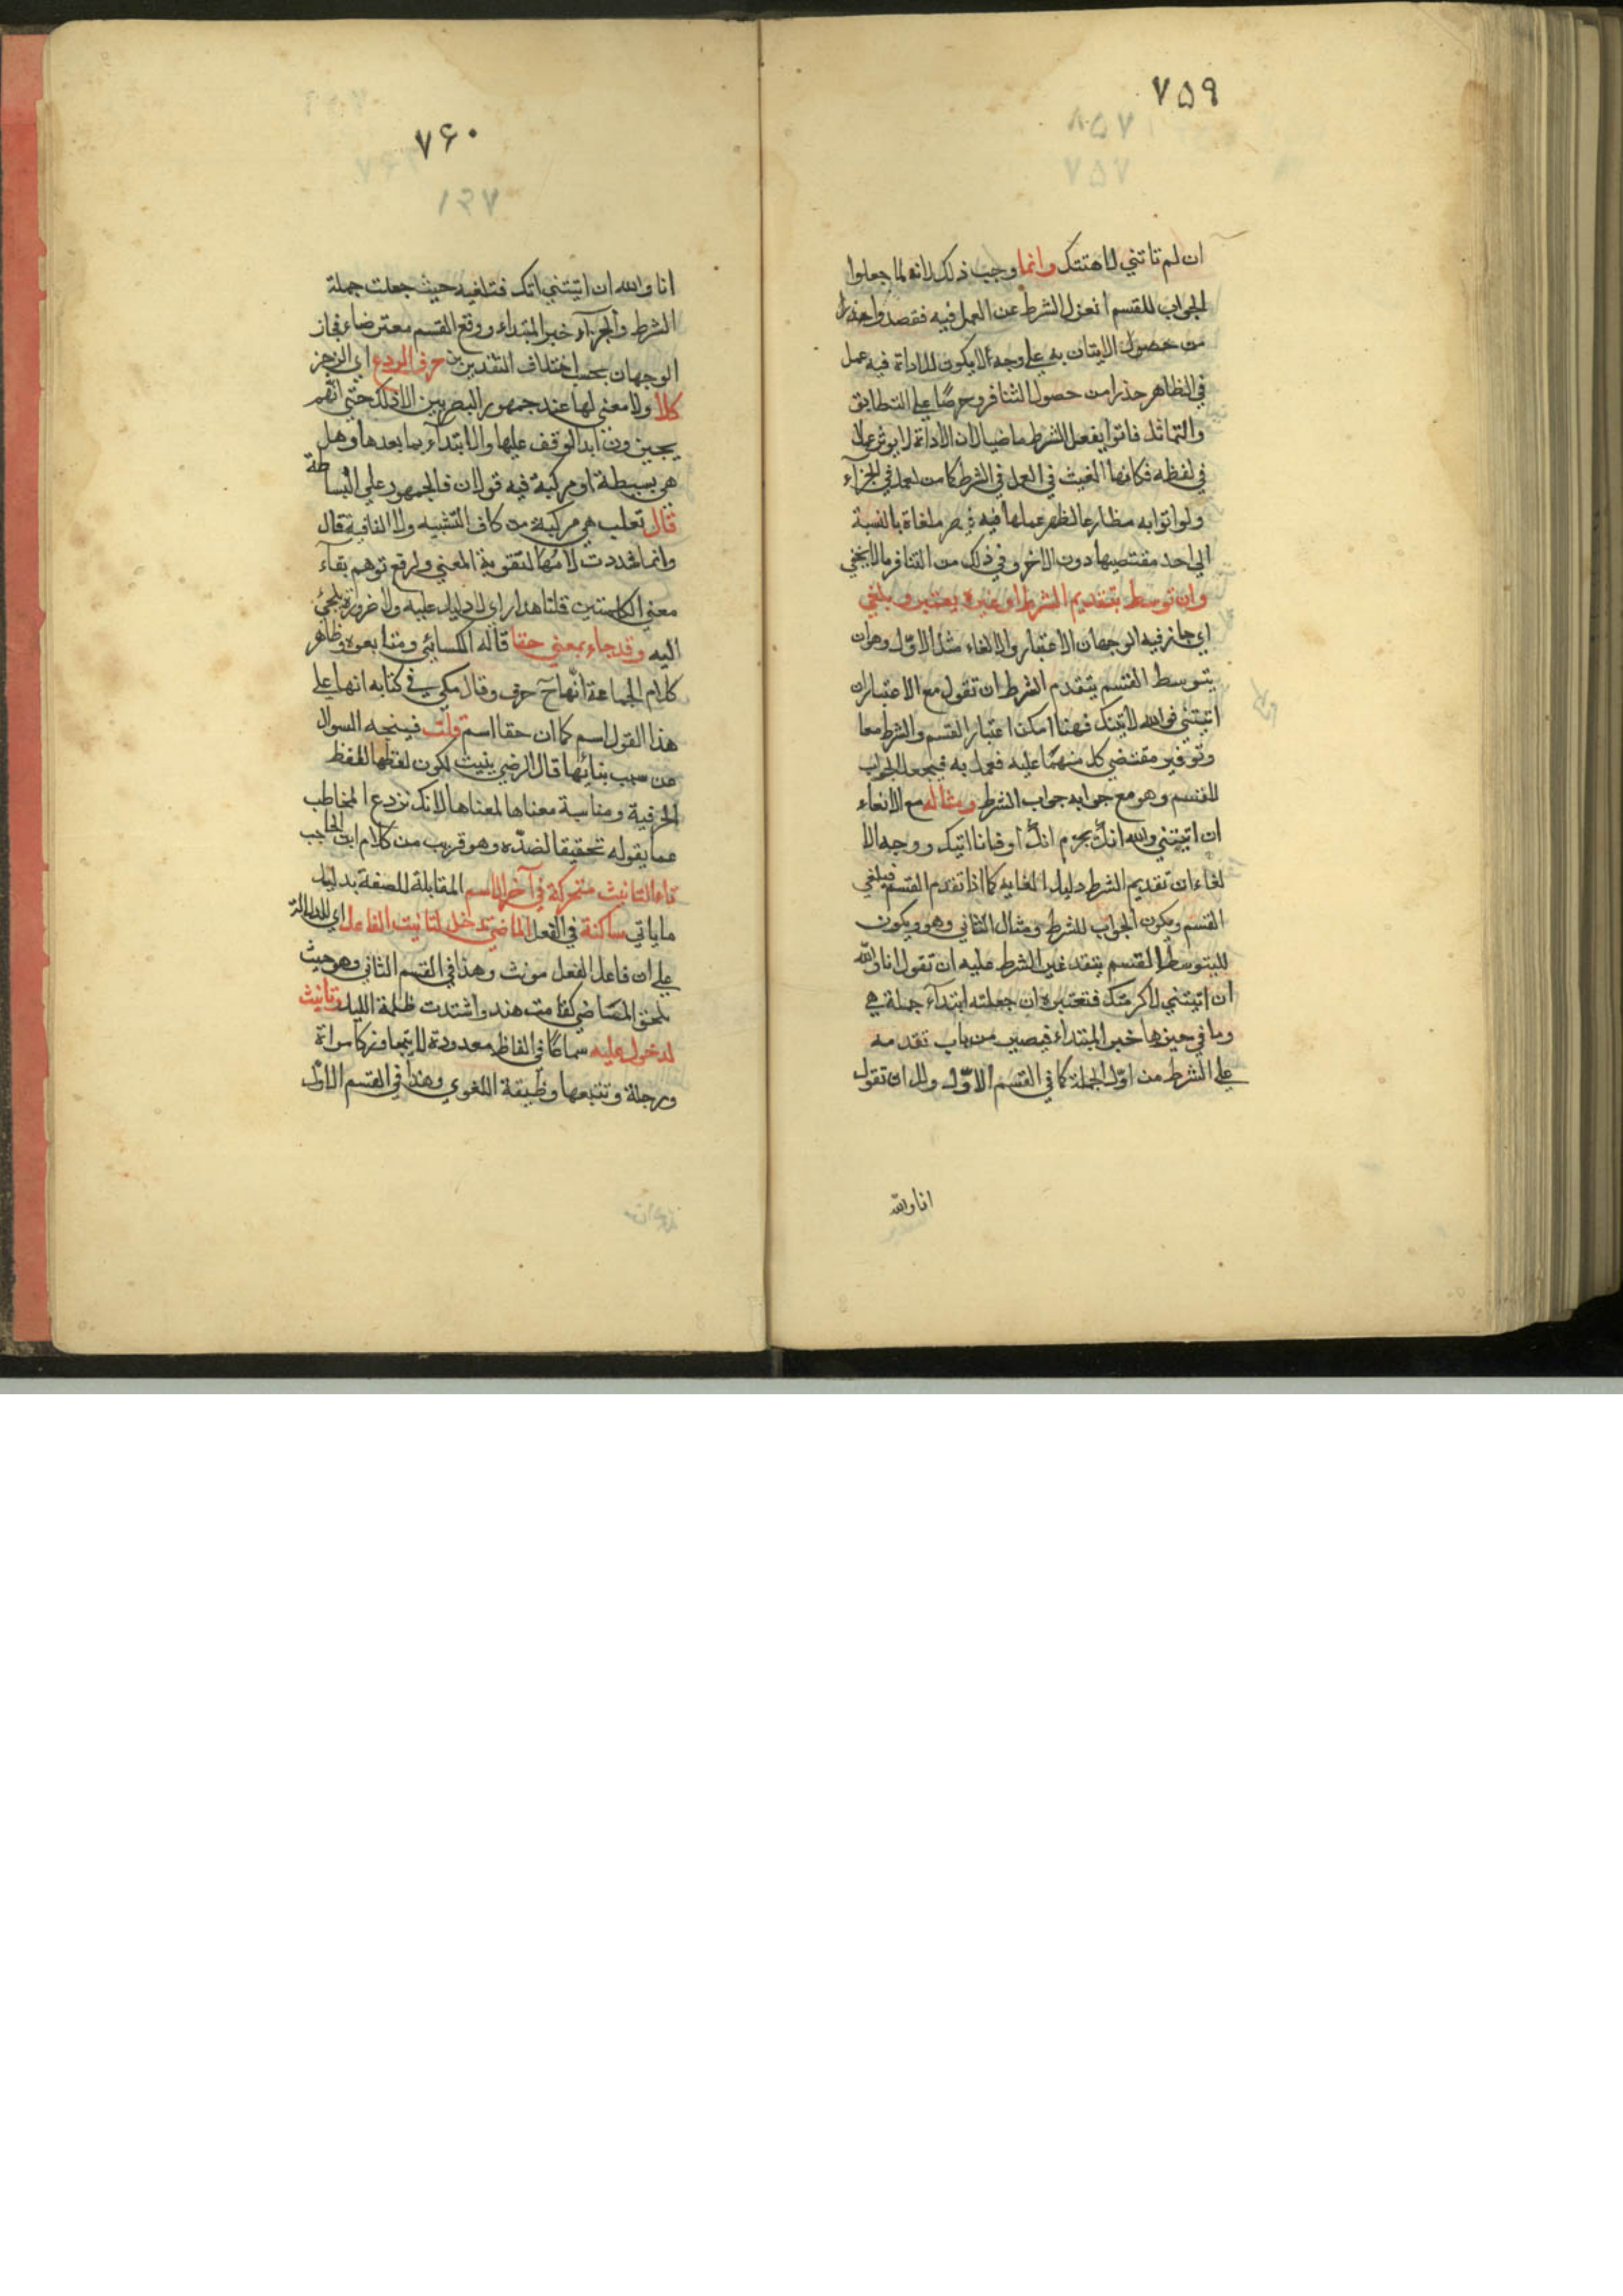 ٧٥٩
ان لم تاتني لاهنتك وانما وجب ذلك لانه لما جعلوا
الجواب للقسم انعزل الشرط عن العمل فيه فقصدوا حذرا
من حصول الاتيان به على وجه لا يكون للاداة فيه عمل
في الظاهر حذرا من حصول التنافر وحرصا على التطابق
والتماثل فاتوا بفعل الشرط ماضيا لان الاداة لا يوثر عملا
في لفظه فكانها الغيت في العمل في الشرط كما من لعمل في الجزآء
ولو اتوا به مضارعا لظهر عملها فيه ملغاة بالنسبة
الى احد مقتضيها دون الاخر وفي ذلك من التنافر ما لا يخفي
وان توسط بتقديم الشرط او غيره يعتبر ويلغي
اي جاز فيه الوجهان الاعتبار والالغاء مثل الاوّل وهو ان
يتوسط القسم بتقدم الشرط ان تقول مع الاعتبار ان
اتيتني فوالله لاتينك فهنا امكن اعتبار القسم والشرط معا
وتوفير مقتضي كل منهما عليه فعمل به فيجعل الجواب
للقسم وهو مع جوابه جواب الشرط ومثاله مع الالغاء
ان اتيتني والله اتك بجزم اتك او فانا اتيك ووجه الا
لغاء ان تقديم الشرط دليل الغايه كما اذا تقدم القسم فيلغي
القسم ويكون الجواب للشرط ومثال الثاني وهو ويكون
للتوسط القسم بتقد غير الشرط عليه ان تقول انا والله
ان اتيتني لاكرمتك فتعتبره ان جعلته ابتدآء جملة هي
وما في حيزها خبر المبتداء فيصير من باب تقدمه
على الشرط من اوّل الجملة كما في القسم الاوّل ولك ان تقول
انا والله
٧۶٠
انا والله ان اتيتني اتك فتلغيه حيث جعلت جملة
الشرط والجزآء خبر المبتداء ووقع القسم معترضا فجاز
الوجهان بحسب اختلاف التقديرين حرف الردع اي الزجر
كلا ولا معني لها عند جمهور البصريين الا ذلك حتي انهم
يجيزون ابدا لوقف عليها والابتدآء بما بعدها وهل
هي بسيطة او مركبة فيه قولان فالجمهور علي البساطة
قال ثعلب هي مركبة من كاف التشبيه ولا النافية قال
وانما شددت لامها لتقوية المعني ولرفع توهم بقآء
معني الكلمتين قلنا هذا راي لا دليل عليه ولا ضرورة يلجئ
اليه وقد جاء بمعني حقا قاله الكسائي ومتابعوه وظاهر
كلام الجماعة انها ح حرف وقال مكي في كتابه انها على
هذا القول اسم كما ان حقا اسم قلت فيتجه السوال
عن سبب بنائها قال الرضي بنيت لكون لفظها للفظ
الحرفية ومناسبة معناها لمعناها لانك تردع المخاطب
عما يقوله تحقيقا لضدّه وهو قريب من كلام ابن الحاجب
تاء التانيث متحركة في آخر الاسم المقابلة للصفة بدليل
ما ياتي ساكنة في الفعل الماضي تدخل لتانيث الفاعل اي للدلالة
على ان فاعل الفعل مونث وهذا في القسم الثاني وهو حيث
تلحق الماضي كقامت هند واشتدت ظلمة الليل وتانيث
لدخول عليه سماعًا في الفاظ معدودة لا يتجاوزها كامراة
ورجلة وتتبعها وظيفة اللغوي وهذا في القسم الاوّل